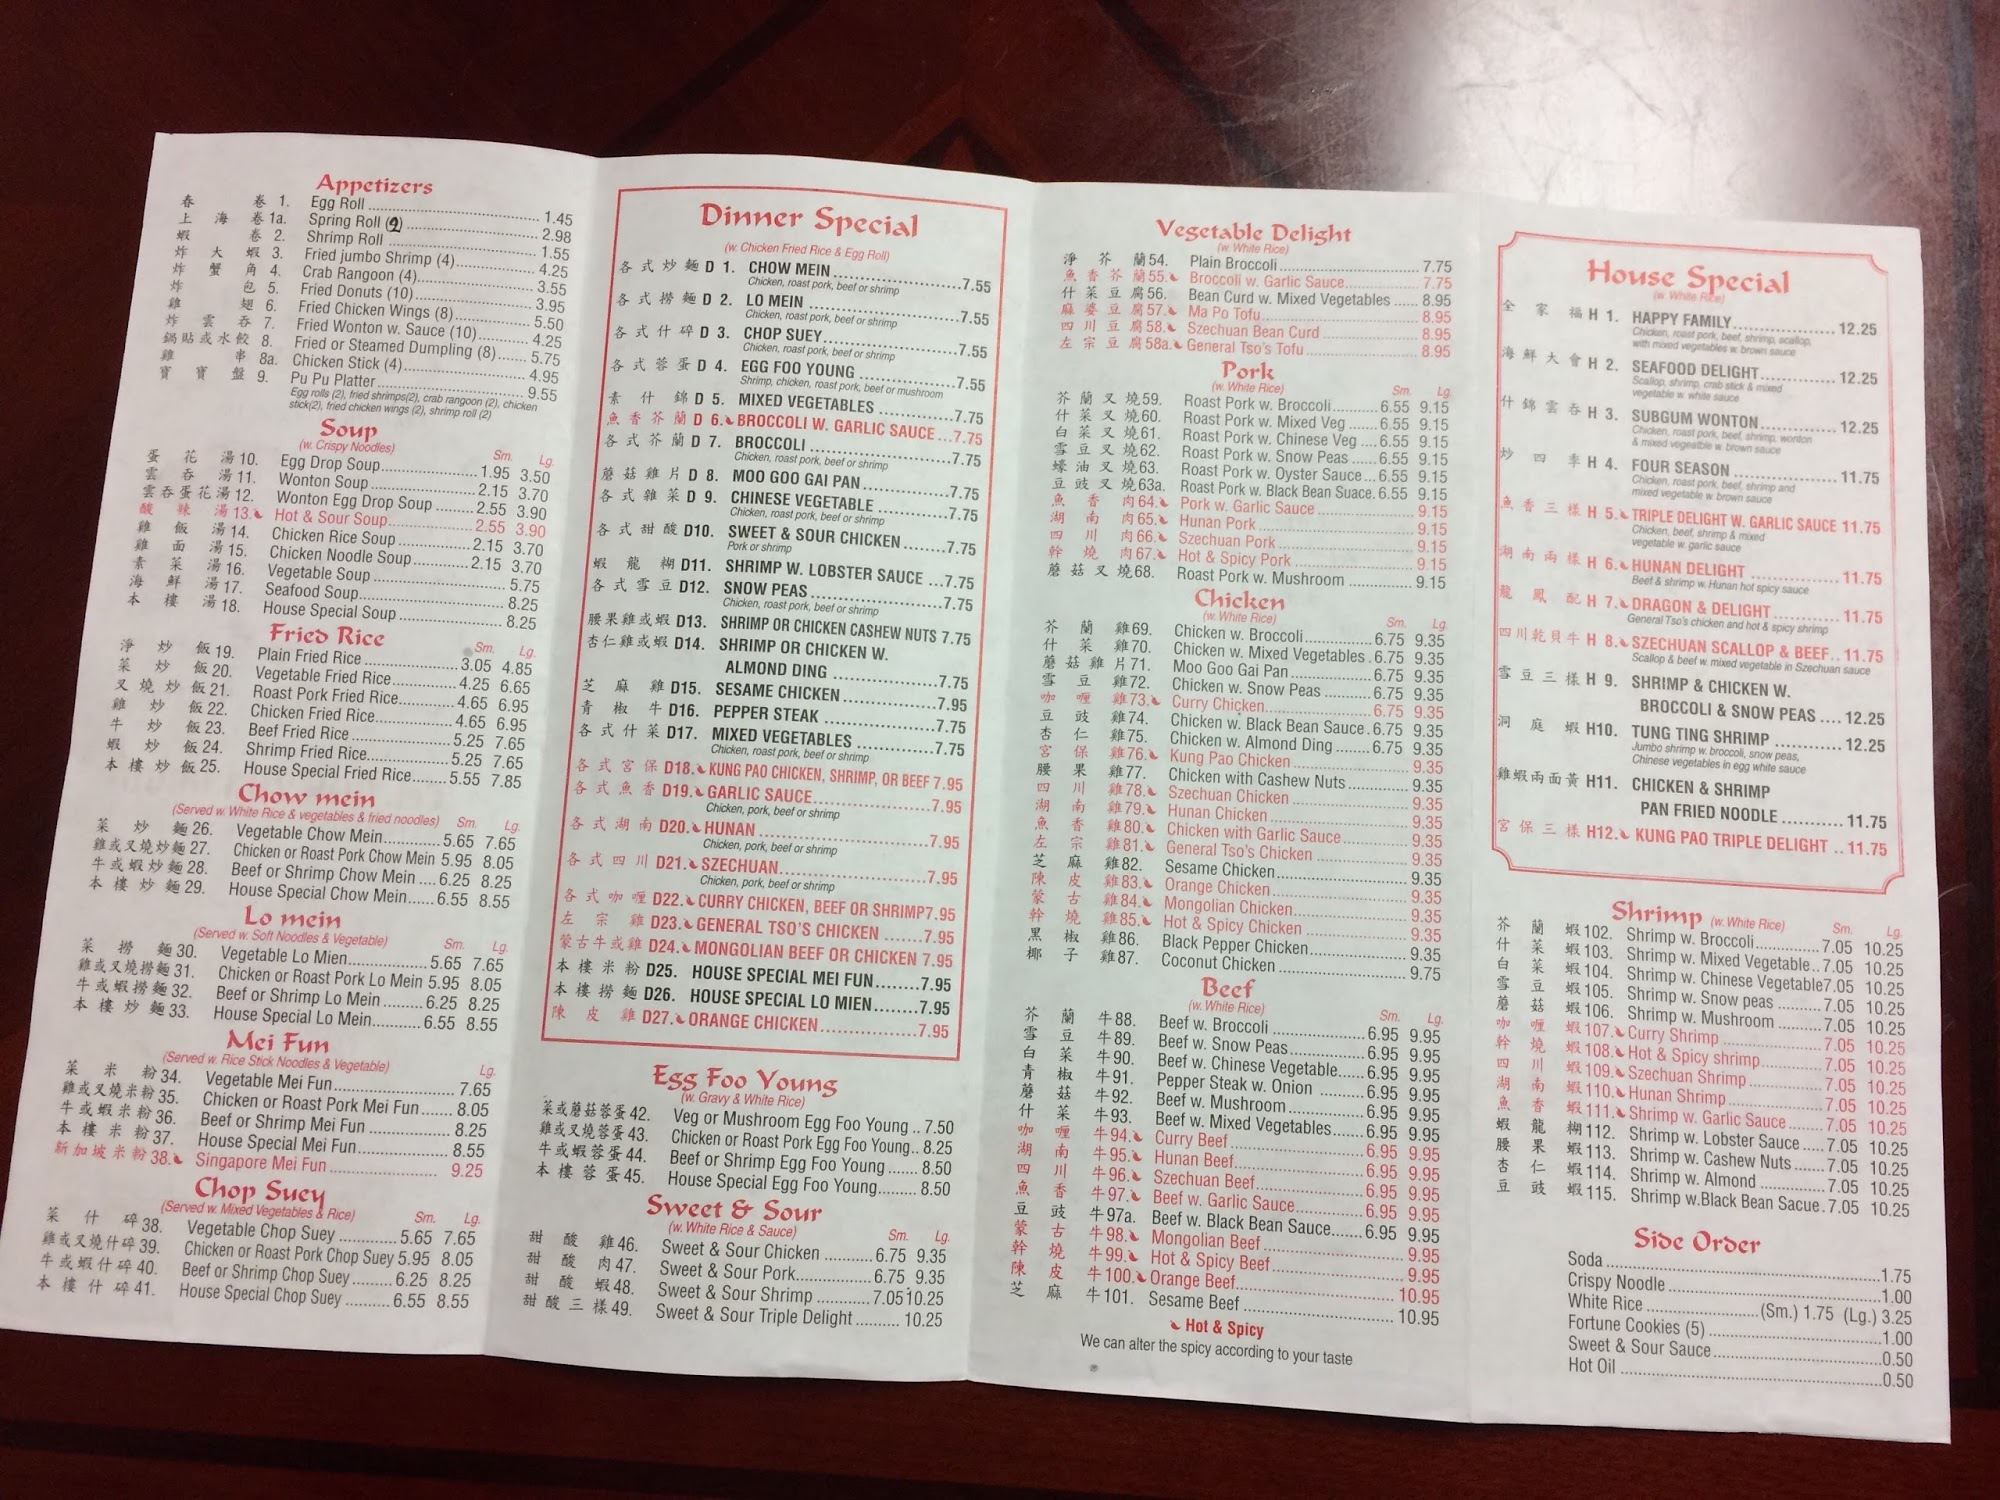 Appetizers
春 卷 1. Egg Roll 1.45
上 海 卷 1a. Spring Roll (2) 2.98
蝦 卷 2. Shrimp Roll 1.55
炸 大 蝦 3. Fried jumbo Shrimp (4) 4.25
炸 蟹 角 4. Crab Rangoon (4) 3.55
炸 包 5. Fried Donuts (10) 3.95
雞 翅 6. Fried Chicken Wings (8) 5.50
炸 雲 吞 7. Fried Wonton w. Sauce (10) 4.25
鍋貼或水餃 8. Fried or Steamed Dumpling (8) 5.75
雞 串 8a. Chicken Stick (4) 4.95
寶 寶 盤 9. Pu Pu Platter 9.55
Egg rolls (2), fried shrimps(2), crab rangoon (2), chicken
stick(2), fried chicken wings (2), shrimp roll (2)
Soup
(w. Crispy Noodles) Sm. Lg.
蛋 花 湯 10. Egg Drop Soup 1.95 3.50
雲 吞 湯 11. Wonton Soup 2.15 3.70
雲吞蛋花湯 12. Wonton Egg Drop Soup 2.55 3.90
酸 辣 湯 13. Hot & Sour Soup 2.55 3.90
雞 飯 湯 14. Chicken Rice Soup 2.15 3.70
雞 面 湯 15. Chicken Noodle Soup 2.15 3.70
素 菜 湯 16. Vegetable Soup 5.75
海 鮮 湯 17. Seafood Soup 8.25
本 樓 湯 18. House Special Soup 8.25
Fried Rice
Sm. Lg.
淨 炒 飯 19. Plain Fried Rice 3.05 4.85
菜 炒 飯 20. Vegetable Fried Rice 4.25 6.65
叉 燒 炒 飯 21. Roast Pork Fried Rice 4.65 6.95
雞 炒 飯 22. Chicken Fried Rice 4.65 6.95
牛 炒 飯 23. Beef Fried Rice 5.25 7.65
蝦 炒 飯 24. Shrimp Fried Rice 5.25 7.65
本 樓 炒 飯 25. House Special Fried Rice 5.55 7.85
Chow mein
(Served w. White Rice & vegetables & fried noodles) Sm. Lg.
菜 炒 麵 26. Vegetable Chow Mein 5.65 7.65
雞或叉燒炒麵 27. Chicken or Roast Pork Chow Mein 5.95 8.05
牛或蝦炒麵 28. Beef or Shrimp Chow Mein 6.25 8.25
本 樓 炒 麵 29. House Special Chow Mein 6.55 8.55
Lo mein
(Served w. Soft Noodles & Vegetable) Sm. Lg.
菜 撈 麵 30. Vegetable Lo Mien 5.65 7.65
雞或叉燒撈麵 31. Chicken or Roast Pork Lo Mein 5.95 8.05
牛或蝦撈麵 32. Beef or Shrimp Lo Mein 6.25 8.25
本 樓 炒 麵 33. House Special Lo Mein 6.55 8.55
Mei Fun
(Served w. Rice Stick Noodles & Vegetable) Lg.
菜 米 粉 34. Vegetable Mei Fun 7.65
雞或叉燒米粉 35. Chicken or Roast Pork Mei Fun 8.05
牛或蝦米粉 36. Beef or Shrimp Mei Fun 8.25
本 樓 米 粉 37. House Special Mei Fun 8.55
新加坡米粉 38. Singapore Mei Fun 9.25
Chop Suey
(Served w. Mixed Vegetables & Rice) Sm. Lg.
菜 什 碎 38. Vegetable Chop Suey 5.65 7.65
雞或叉燒什碎 39. Chicken or Roast Pork Chop Suey 5.95 8.05
牛或蝦什碎 40. Beef or Shrimp Chop Suey 6.25 8.25
本 樓 什 碎 41. House Special Chop Suey 6.55 8.55
Dinner Special
(w. Chicken Fried Rice & Egg Roll)
各 式 炒 麵 D 1. CHOW MEIN 7.55
Chicken, roast pork, beef or shrimp
各 式 撈 麵 D 2. LO MEIN 7.55
Chicken, roast pork, beef or shrimp
各 式 什 碎 D 3. CHOP SUEY 7.55
Chicken, roast pork, beef or shrimp
各 式 蓉 蛋 D 4. EGG FOO YOUNG 7.55
Shrimp, chicken, roast pork, beef or mushroom
素 什 錦 D 5. MIXED VEGETABLES 7.75
魚 香 芥 蘭 D 6. BROCCOLI W. GARLIC SAUCE 7.75
各 式 芥 蘭 D 7. BROCCOLI 7.75
Chicken, roast pork, beef or shrimp
蘑 菇 雞 片 D 8. MOO GOO GAI PAN 7.75
各 式 雜 菜 D 9. CHINESE VEGETABLE 7.75
Chicken, roast pork, beef or shrimp
各 式 甜 酸 D10. SWEET & SOUR CHICKEN 7.75
Pork or shrimp
蝦 龍 糊 D11. SHRIMP W. LOBSTER SAUCE 7.75
各 式 雪 豆 D12. SNOW PEAS 7.75
Chicken, roast pork, beef or shrimp
腰果雞或蝦 D13. SHRIMP OR CHICKEN CASHEW NUTS 7.75
杏仁雞或蝦 D14. SHRIMP OR CHICKEN W.
ALMOND DING 7.75
芝 麻 雞 D15. SESAME CHICKEN 7.95
青 椒 牛 D16. PEPPER STEAK 7.75
各 式 什 菜 D17. MIXED VEGETABLES 7.75
Chicken, roast pork, beef or shrimp
各 式 宮 保 D18. KUNG PAO CHICKEN, SHRIMP, OR BEEF 7.95
各 式 魚 香 D19. GARLIC SAUCE 7.95
Chicken, pork, beef or shrimp
各 式 湖 南 D20. HUNAN 7.95
Chicken, pork, beef or shrimp
各 式 四 川 D21. SZECHUAN 7.95
Chicken, pork, beef or shrimp
各 式 咖 喱 D22. CURRY CHICKEN, BEEF OR SHRIMP 7.95
左 宗 雞 D23. GENERAL TSO'S CHICKEN 7.95
蒙古牛或雞 D24. MONGOLIAN BEEF OR CHICKEN 7.95
本 樓 米 粉 D25. HOUSE SPECIAL MEI FUN 7.95
本 樓 撈 麵 D26. HOUSE SPECIAL LO MIEN 7.95
陳 皮 雞 D27. ORANGE CHICKEN 7.95
Egg Foo Young
(w. Gravy & White Rice)
菜或蘑菇蓉蛋 42. Veg or Mushroom Egg Foo Young 7.50
雞或叉燒蓉蛋 43. Chicken or Roast Pork Egg Foo Young 8.25
牛或蝦蓉蛋 44. Beef or Shrimp Egg Foo Young 8.50
本 樓 蓉 蛋 45. House Special Egg Foo Young 8.50
Sweet & Sour
(w. White Rice & Sauce) Sm. Lg.
甜 酸 雞 46. Sweet & Sour Chicken 6.75 9.35
甜 酸 肉 47. Sweet & Sour Pork 6.75 9.35
甜 酸 蝦 48. Sweet & Sour Shrimp 7.05 10.25
甜 酸 三 樣 49. Sweet & Sour Triple Delight 10.25
Vegetable Delight
(w. White Rice)
淨 芥 蘭 54. Plain Broccoli 7.75
魚 香 芥 蘭 55. Broccoli w. Garlic Sauce 7.75
什 菜 豆 腐 56. Bean Curd w. Mixed Vegetables 8.95
麻 婆 豆 腐 57. Ma Po Tofu 8.95
四 川 豆 腐 58. Szechuan Bean Curd 8.95
左 宗 豆 腐 58a. General Tso's Tofu 8.95
Pork
(w. White Rice) Sm. Lg.
芥 蘭 叉 燒 59. Roast Pork w. Broccoli 6.55 9.15
什 菜 叉 燒 60. Roast Pork w. Mixed Veg 6.55 9.15
白 菜 叉 燒 61. Roast Pork w. Chinese Veg 6.55 9.15
雪 豆 叉 燒 62. Roast Pork w. Snow Peas 6.55 9.15
蠔 油 叉 燒 63. Roast Pork w. Oyster Sauce 6.55 9.15
豆 豉 叉 燒 63a. Roast Pork w. Black Bean Suace 6.55 9.15
魚 香 肉 64. Pork w. Garlic Sauce 9.15
湖 南 肉 65. Hunan Pork 9.15
四 川 肉 66. Szechuan Pork 9.15
幹 燒 肉 67. Hot & Spicy Pork 9.15
蘑 菇 叉 燒 68. Roast Pork w. Mushroom 9.15
Chicken
(w. White Rice) Sm. Lg.
芥 蘭 雞 69. Chicken w. Broccoli 6.75 9.35
什 菜 雞 70. Chicken w. Mixed Vegetables 6.75 9.35
蘑 菇 雞 片 71. Moo Goo Gai Pan 6.75 9.35
雪 豆 雞 72. Chicken w. Snow Peas 6.75 9.35
咖 喱 雞 73. Curry Chicken 6.75 9.35
豆 豉 雞 74. Chicken w. Black Bean Sauce 6.75 9.35
杏 仁 雞 75. Chicken w. Almond Ding 6.75 9.35
宮 保 雞 76. Kung Pao Chicken 9.35
腰 果 雞 77. Chicken with Cashew Nuts 9.35
四 川 雞 78. Szechuan Chicken 9.35
湖 南 雞 79. Hunan Chicken 9.35
魚 香 雞 80. Chicken with Garlic Sauce 9.35
左 宗 雞 81. General Tso's Chicken 9.35
芝 麻 雞 82. Sesame Chicken 9.35
陳 皮 雞 83. Orange Chicken 9.35
蒙 古 雞 84. Mongolian Chicken 9.35
幹 燒 雞 85. Hot & Spicy Chicken 9.35
黑 椒 雞 86. Black Pepper Chicken 9.35
椰 子 雞 87. Coconut Chicken 9.75
Beef
(w. White Rice) Sm. Lg.
芥 蘭 牛 88. Beef w. Broccoli 6.95 9.95
雪 豆 牛 89. Beef w. Snow Peas 6.95 9.95
白 菜 牛 90. Beef w. Chinese Vegetable 6.95 9.95
青 椒 牛 91. Pepper Steak w. Onion 6.95 9.95
蘑 菇 牛 92. Beef w. Mushroom 6.95 9.95
什 菜 牛 93. Beef w. Mixed Vegetables 6.95 9.95
咖 喱 牛 94. Curry Beef 6.95 9.95
湖 南 牛 95. Hunan Beef 6.95 9.95
四 川 牛 96. Szechuan Beef 6.95 9.95
魚 香 牛 97. Beef w. Garlic Sauce 6.95 9.95
豆 豉 牛 97a. Beef w. Black Bean Sauce 6.95 9.95
蒙 古 牛 98. Mongolian Beef 9.95
幹 燒 牛 99. Hot & Spicy Beef 9.95
陳 皮 牛 100. Orange Beef 10.95
芝 麻 牛 101. Sesame Beef 10.95
Hot & Spicy
We can alter the spicy according to your taste
House Special
(w. White Rice)
全 家 福 H 1. HAPPY FAMILY 12.25
Chicken, roast pork, beef, shrimp, scallop,
with mixed vegetables w. brown sauce
海 鮮 大 會 H 2. SEAFOOD DELIGHT 12.25
Scallop, shrimp, crab stick & mixed
vegetable w. white sauce
什 錦 雲 吞 H 3. SUBGUM WONTON 12.25
Chicken, roast pork, beef, shrimp, wonton
& mixed vegeatble w. brown sauce
炒 四 季 H 4. FOUR SEASON 11.75
Chicken, roast pork, beef, shrimp and
mixed vegetable w. brown sauce
魚 香 三 樣 H 5. TRIPLE DELIGHT W. GARLIC SAUCE 11.75
Chicken, beef, shrimp & mixed
vegetable w. garlic sauce
湖 南 兩 樣 H 6. HUNAN DELIGHT 11.75
Beef & shrimp w. Hunan hot spicy sauce
龍 鳳 配 H 7. DRAGON & DELIGHT 11.75
General Tso's chicken and hot & spicy shrimp
四川乾貝牛 H 8. SZECHUAN SCALLOP & BEEF 11.75
Scallop & beef w. mixed vegetable in Szechuan sauce
雪 豆 三 樣 H 9. SHRIMP & CHICKEN W.
BROCCOLI & SNOW PEAS 12.25
洞 庭 蝦 H10. TUNG TING SHRIMP 12.25
Jumbo shrimp w. broccoli, snow peas,
Chinese vegetables in egg white sauce
雞蝦兩面黃 H11. CHICKEN & SHRIMP
PAN FRIED NOODLE 11.75
宮 保 三 樣 H12. KUNG PAO TRIPLE DELIGHT 11.75
Shrimp (w. White Rice) Sm. Lg.
芥 蘭 蝦 102. Shrimp w. Broccoli 7.05 10.25
什 菜 蝦 103. Shrimp w. Mixed Vegetable 7.05 10.25
白 菜 蝦 104. Shrimp w. Chinese Vegetable 7.05 10.25
雪 豆 蝦 105. Shrimp w. Snow peas 7.05 10.25
蘑 菇 蝦 106. Shrimp w. Mushroom 7.05 10.25
咖 喱 蝦 107. Curry Shrimp 7.05 10.25
幹 燒 蝦 108. Hot & Spicy shrimp 7.05 10.25
四 川 蝦 109. Szechuan Shrimp 7.05 10.25
湖 南 蝦 110. Hunan Shrimp 7.05 10.25
魚 香 蝦 111. Shrimp w. Garlic Sauce 7.05 10.25
蝦 龍 糊 112. Shrimp w. Lobster Sauce 7.05 10.25
腰 果 蝦 113. Shrimp w. Cashew Nuts 7.05 10.25
杏 仁 蝦 114. Shrimp w. Almond 7.05 10.25
豆 豉 蝦 115. Shrimp w.Black Bean Sacue 7.05 10.25
Side Order
Soda 1.75
Crispy Noodle 1.00
White Rice (Sm.) 1.75 (Lg.) 3.25
Fortune Cookies (5) 1.00
Sweet & Sour Sauce 0.50
Hot Oil 0.50